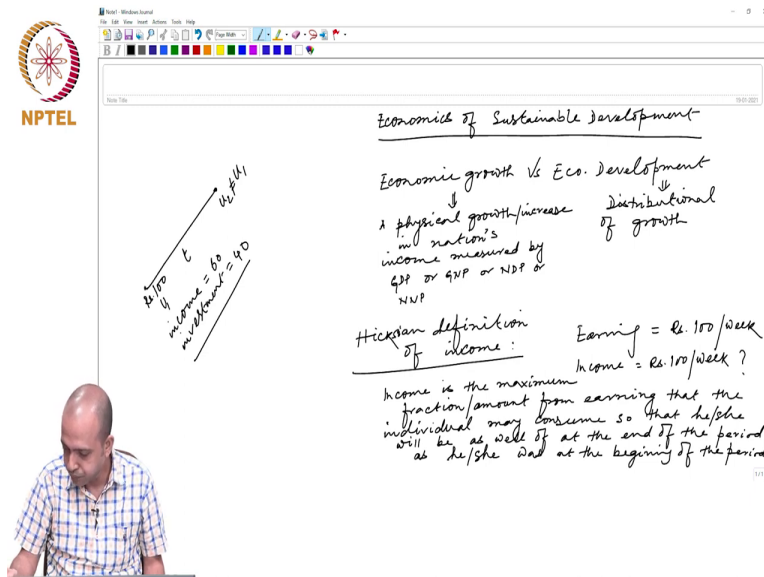 Note1 - Windows Journal
File Edit View Insert Actions Tools Help
Page Width
B I
NPTEL
Note Title
19-01-2021
Economics of Sustainable Development
Economic growth Vs Eco. Development
⇓ ⇓
physical growth/increase
in nation's
income measured by
GDP or GNP or NDP or
NNP
Distributional
of growth
Hicksian definition
of income :
Earning = Rs. 100/week
Income = Rs. 100/week ?
Income is the maximum
fraction/amount from earning that the
individual may consume so that he/she
will be as well of at the end of the period
as he/she was at the begining of the period
Rs. 100
t
U₁
U₂ ≠ U₁
income = 60
investment = 40
1/1